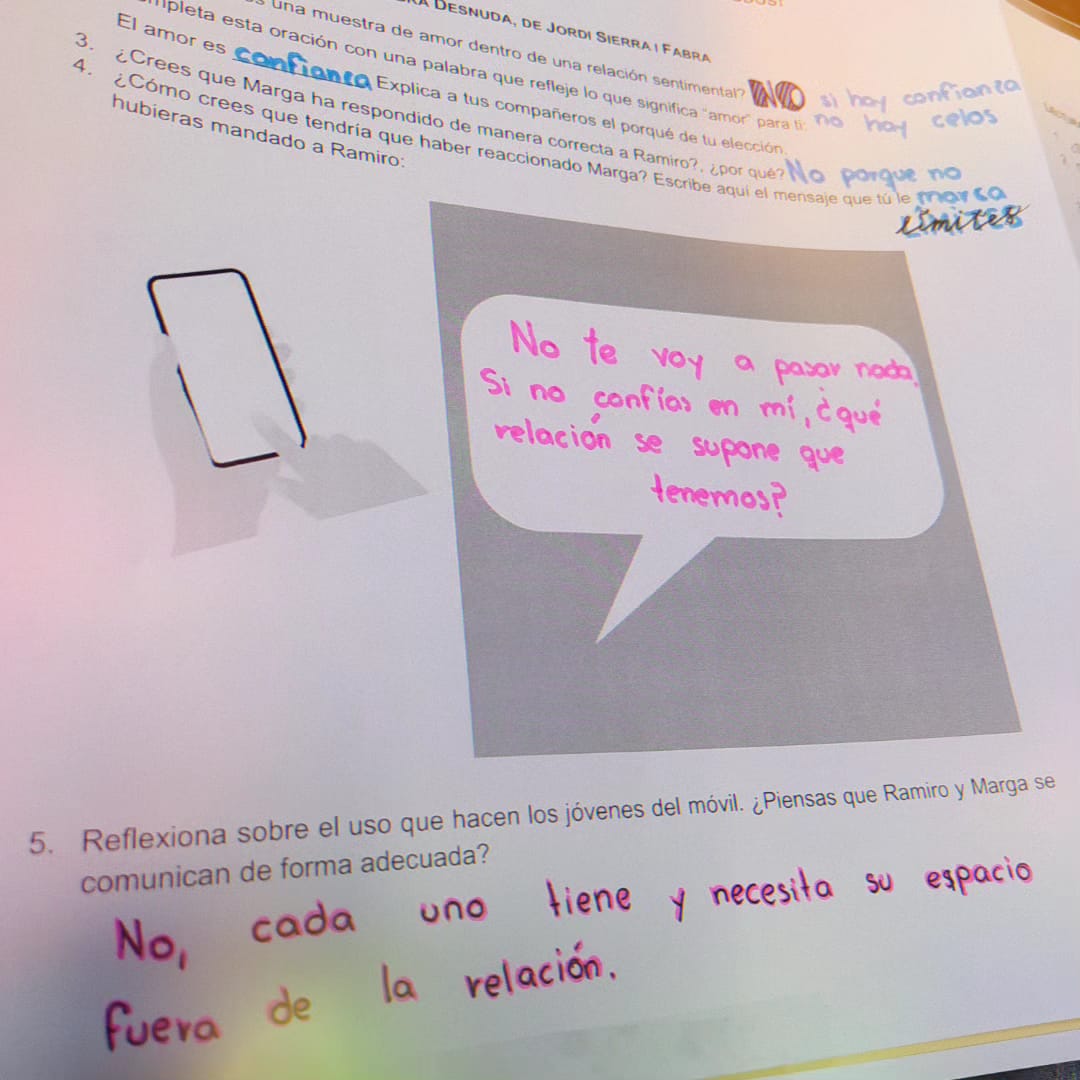 DESNUDA, DE JORDI SIERRA I FABRA
una muestra de amor dentro de una relación sentimental? NO si hay confianza
esta oración con una palabra que refleje lo que significa "amor" para ti: no hay celos
El amor es confianza Explica a tus compañeros el porqué de tu elección.
3. ¿Crees que Marga ha respondido de manera correcta a Ramiro?, ¿por qué? No porque no
4. ¿Cómo crees que tendría que haber reaccionado Marga? Escribe aquí el mensaje que tú le marca
hubieras mandado a Ramiro:
límites
No te voy a pasar nada.
Si no confías en mí, ¿qué
relación se supone que
tenemos?
5. Reflexiona sobre el uso que hacen los jóvenes del móvil. ¿Piensas que Ramiro y Marga se
comunican de forma adecuada?
No, cada uno tiene y necesita su espacio
fuera de la relación.